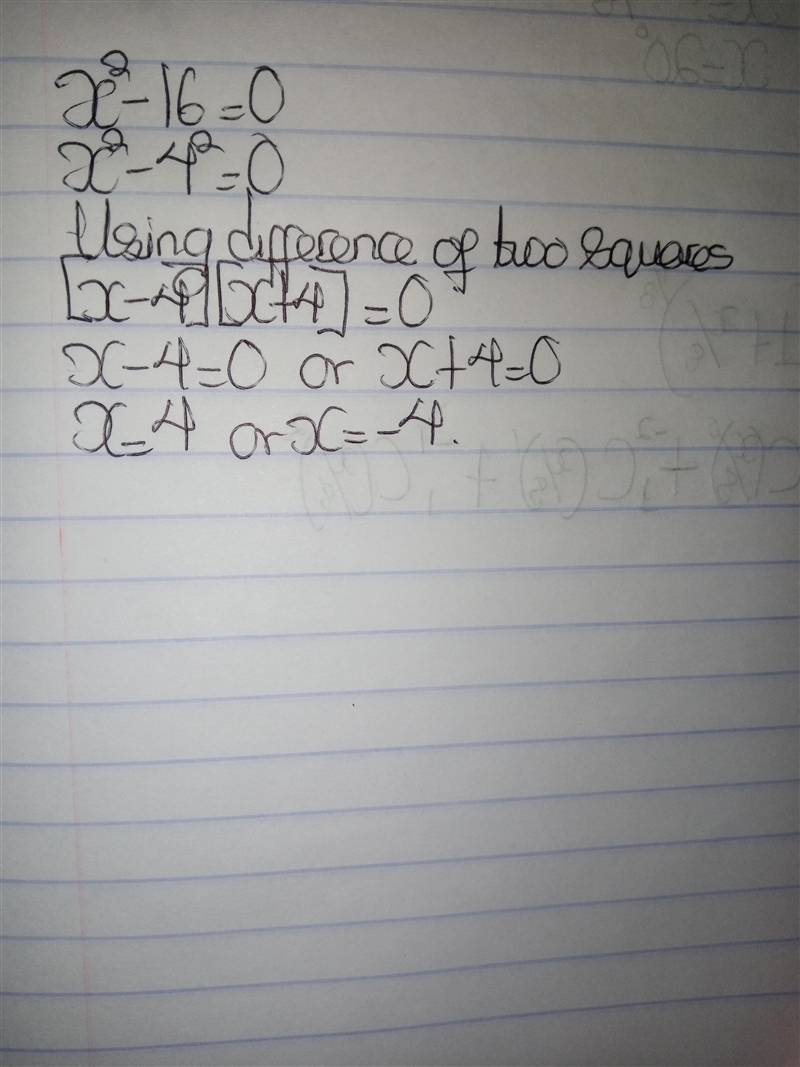 x² - 16 = 0
x² - 4² = 0
Using difference of two squares
[x - 4][x + 4] = 0
x - 4 = 0 or x + 4 = 0
x = 4 or x = -4.